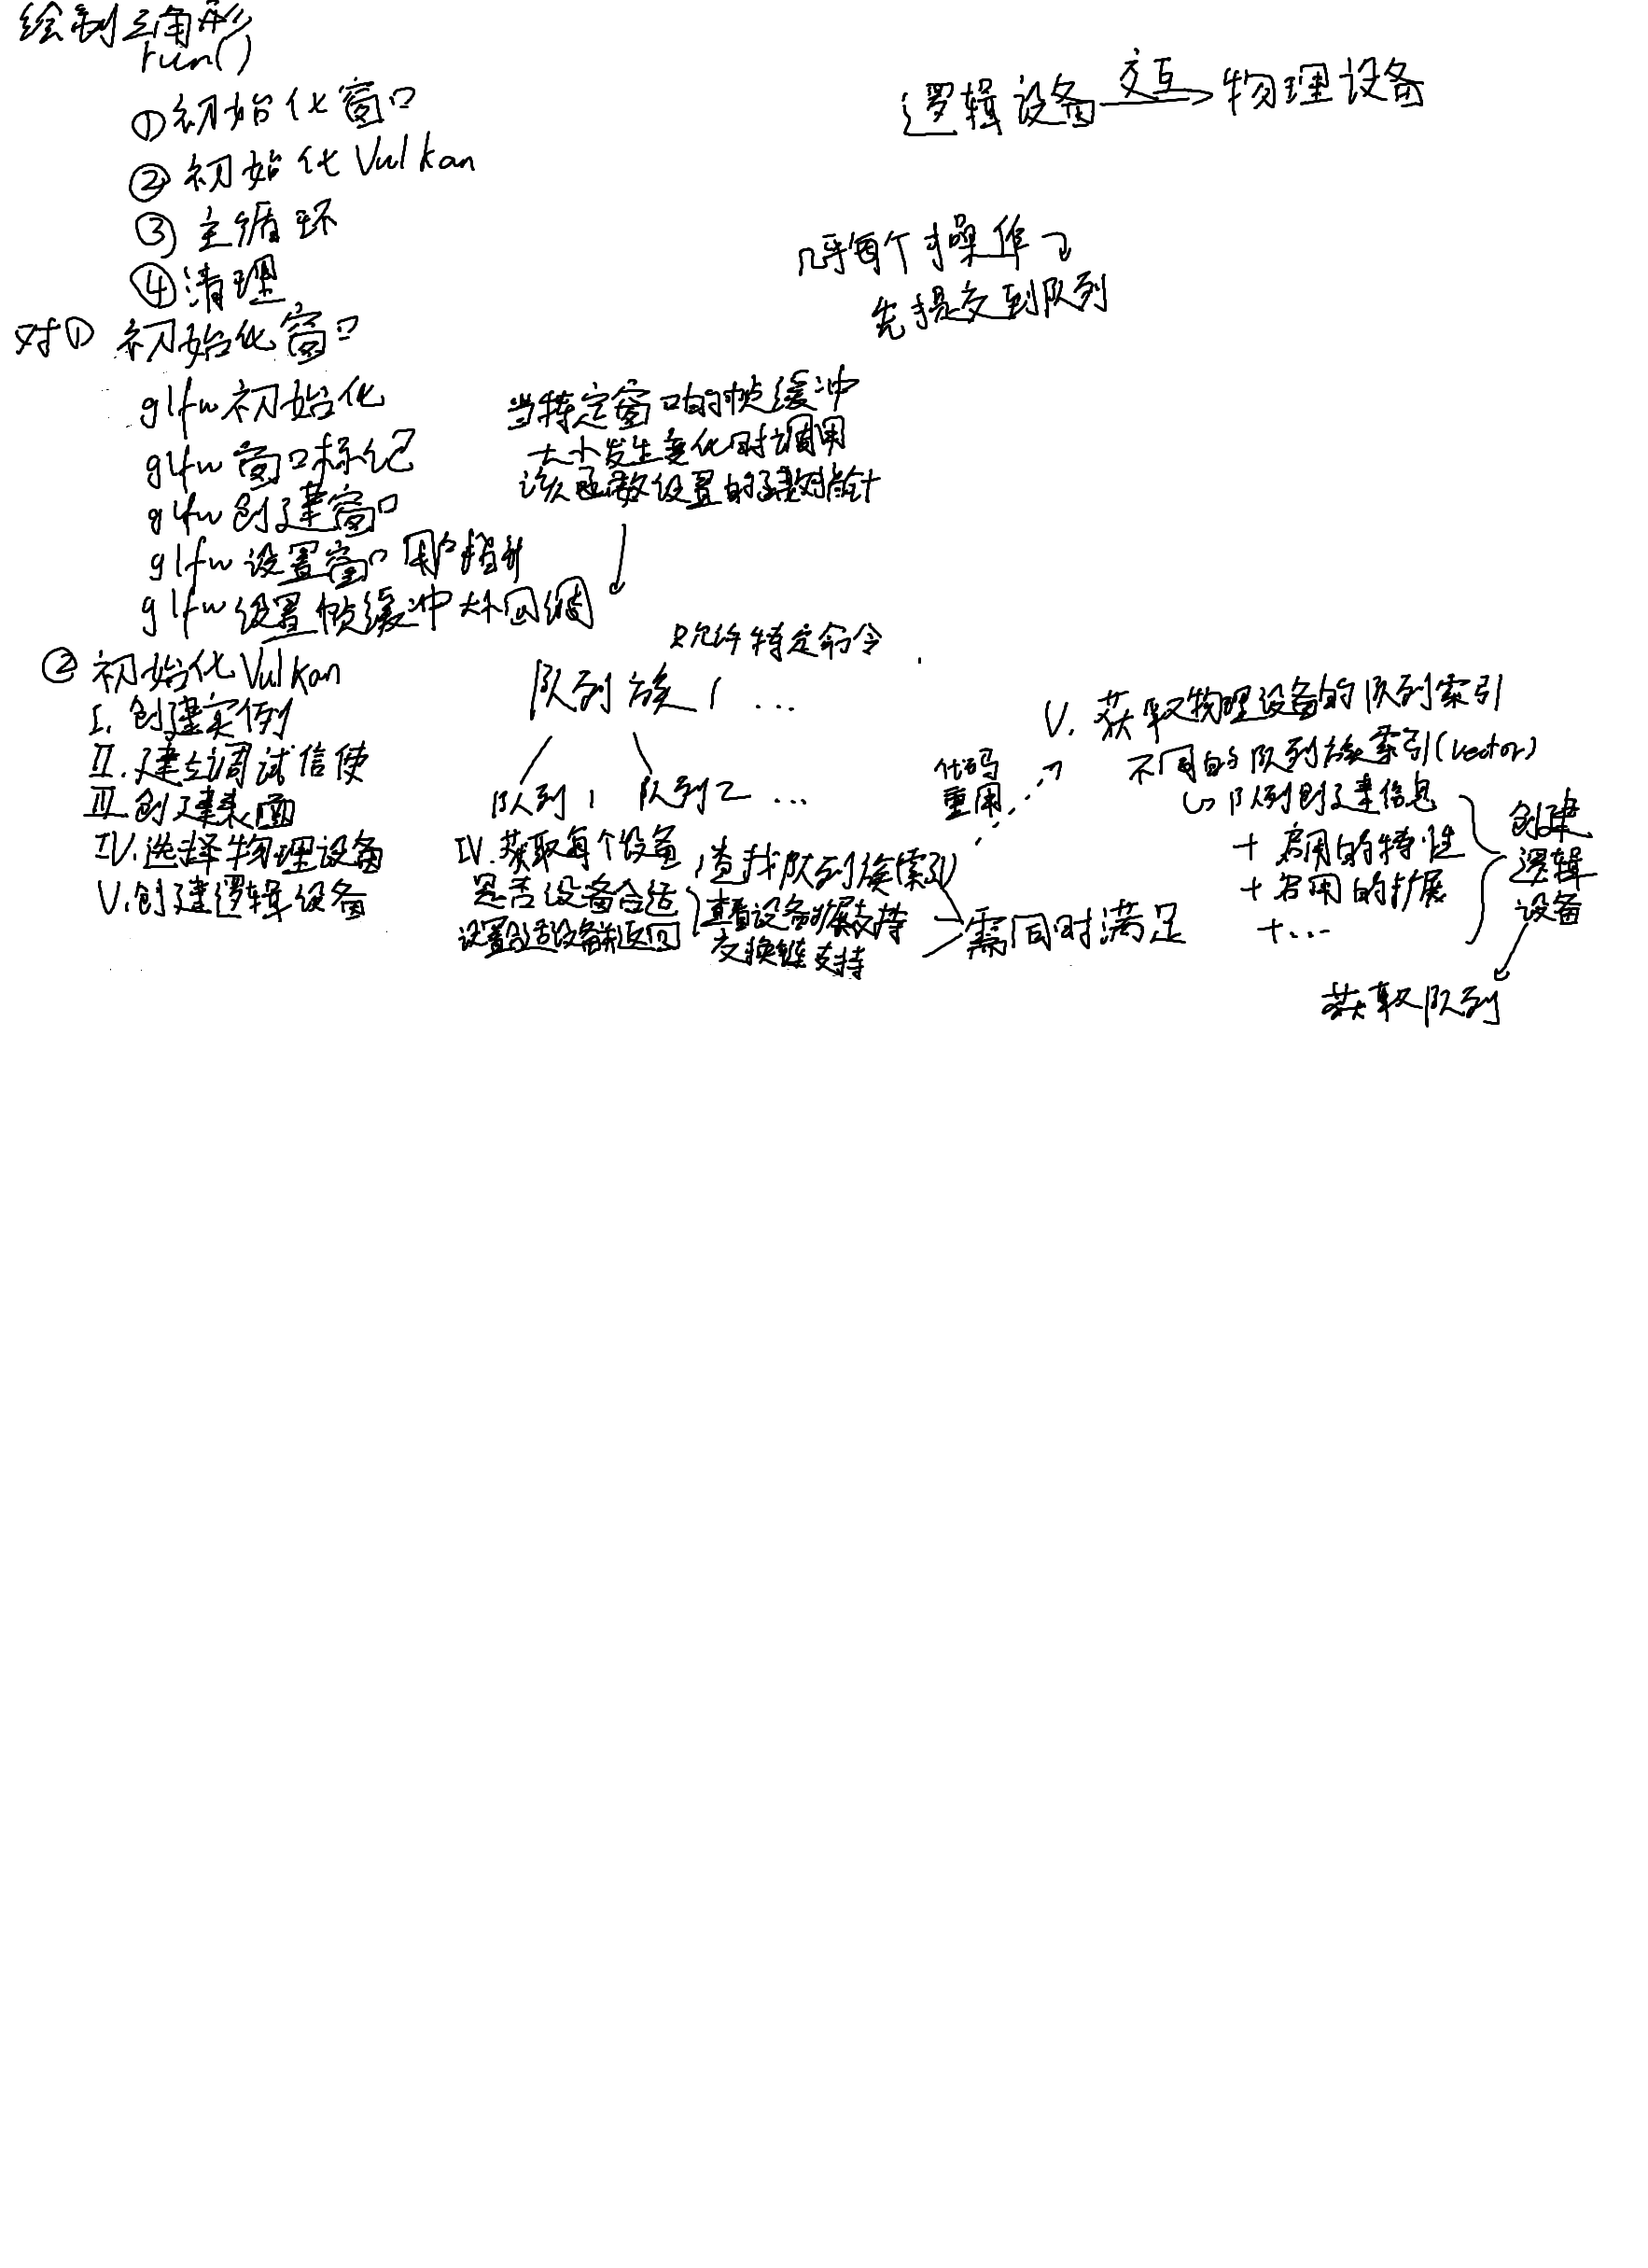 绘制三角形
run()
①初始化窗口
②初始化Vulkan
③主循环
④清理
逻辑设备 交互 物理设备
几乎每个操作
先提交到队列
对① 初始化窗口
glfw初始化
glfw窗口标记
glfw创建窗口
glfw设置窗口用户指针
glfw设置帧缓冲大小回调
当特定窗口的帧缓冲
大小发生变化时调用
该函数设置的函数指针
②初始化Vulkan
I.创建实例
II.建立调试信使
III.创建表面
IV.选择物理设备
V.创建逻辑设备
只允许特定命令
队列族1 ...
队列1 队列2 ...
IV.获取每个设备
是否设备合适
设置合适设备并返回
查找队列族索引
查看设备扩展支持
交换链支持
需同时满足
代码
重用
V.获取物理设备的队列索引
不同的队列族索引(vector)
队列创建信息
+启用的特性
+启用的扩展
+...
创建
逻辑
设备
获取队列